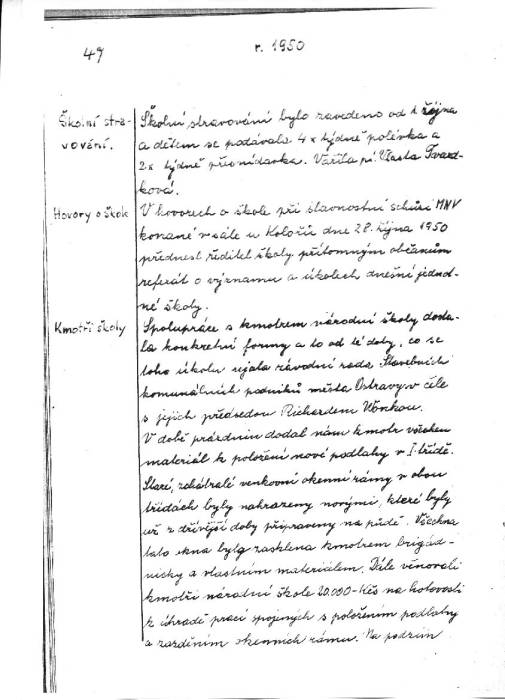 49
r. 1950
Školní stra-
vování.
Školní stravování bylo zavedeno od 1. října
a dětem se podávala 4 x týdně polévka a
2x týdně přesnídávka. Vařila pí Vlasta Tvard-
ková.
Hovory o škole
V hovorech o škole při slavnostní schůzi MNV
konané v sále u Kolářů dne 28. října 1950
přednesl ředitel školy přítomným občanům
referát o významu a úkolech dnešní jednot-
né školy.
Kmotři školy
Spolupráce s kmotrem národní školy doda-
la konkretní formy a to od té doby, co se
toho úkolu ujala závodní rada Stavebních
komunálních podniků města Ostravy v čele
s jejich předsedou Richardem Wonkou.
V době prázdnin dodal nám kmotr všechen
materiál k položení nové podlahy v I. třídě.
Staré, zchátralé venkovní okenní rámy v obou
třídách byly nahrazeny novými, které byly
už z dřívější doby připraveny na půdě. Všechna
tato okna byla zasklena kmotrem brigád-
nicky a vlastním materiálem. Dále věnovali
kmotři národní škole 20.000 Kčs na hotovosti
k úhradě prací spojených s položením podlahy
a zazděním okenních rámů. Na podzim